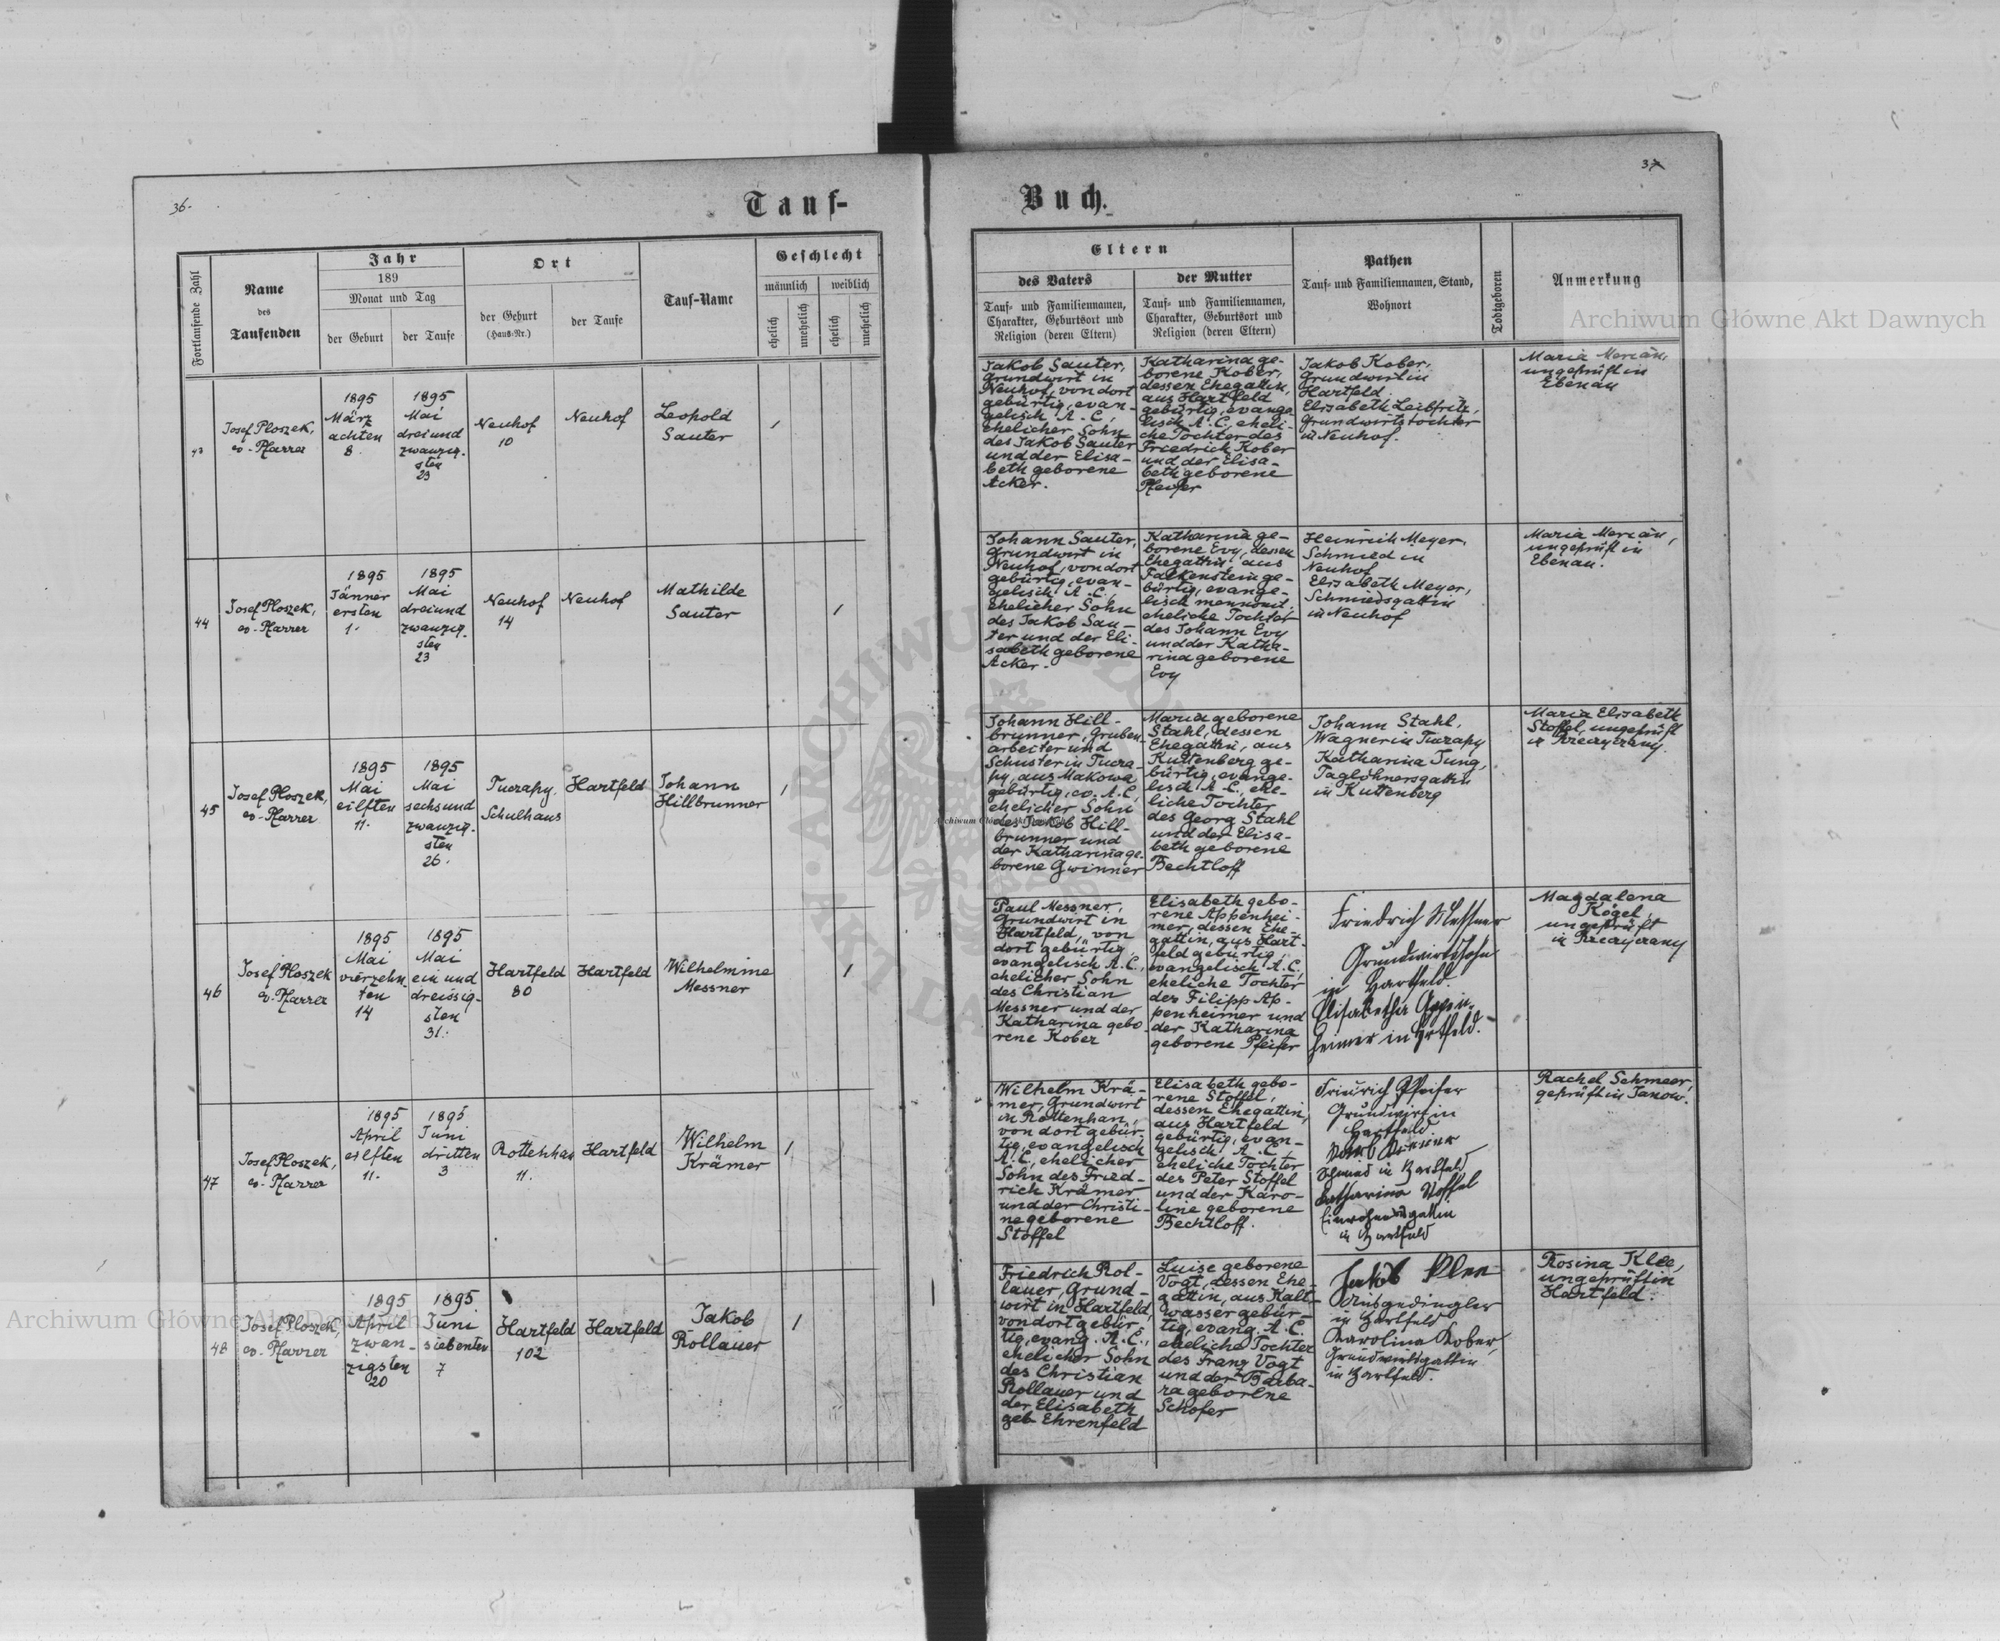 36.
37
Tauf-
Buch.
Fortlaufende Zahl
Name
des
Taufenden
Jahr
189
Monat und Tag
der Geburt
der Taufe
Ort
der Geburt
(Haus-Nr.)
der Taufe
Tauf-Name
Geschlecht
männlich
weiblich
ehelich
unehelich
ehelich
unehelich
Eltern
des Vaters
Tauf- und Familiennamen,
Charakter, Geburtsort und
Religion (deren Eltern)
der Mutter
Tauf- und Familiennamen,
Charakter, Geburtsort und
Religion (deren Eltern)
Pathen
Tauf- und Familiennamen, Stand,
Wohnort
Todtgeboren
Anmerkung
43
Josef Ploszek,
ev. Pfarrer
1895
März
achten
8
1895
Mai
dreiund
zwanzig-
sten
23
Neuhof
10
Neuhof
Leopold
Sauter
Jakob Sauter,
Grundwirt in
Neuhof, von dort
gebürtig, evan-
gelisch A. C.,
ehelicher Sohn
des Jakob Sauter
und der Elisa-
beth geborene
Acker.
Katharina ge-
borene Kober,
dessen Ehegattin,
aus Hartfeld
gebürtig, evange-
lisch A. C., eheli-
che Tochter des
Friedrich Kober
und der Elisa-
beth geborene
Pfeifer
Jakob Kober,
Grundwirt in
Hartfeld.
Elisabeth Leibfritz,
Grundwirtstochter
in Neuhof.
Maria Merian,
ungeprüft in
Ebenau
44
Josef Ploszek,
ev. Pfarrer
1895
Jänner
ersten
1.
1895
Mai
dreiund
zwanzig-
sten
23
Neuhof
14
Neuhof
Mathilde
Sauter
Johann Sauter,
Grundwirt in
Neuhof, von dort
gebürtig, evan-
gelisch A. C.,
ehelicher Sohn
des Jakob Sau-
ter und der Eli-
sabeth geborene
Acker.
Katharina ge-
borene Evy, dessen
Ehegattin aus
Falkenstein ge-
bürtig, evange-
lisch mennonit.
eheliche Tochter
des Johann Evy
und der Katha-
rina geborene
Evy
Heinrich Meyer,
Schmied in
Neuhof
Elisabeth Meyer,
Schmiedsgattin
in Neuhof
Maria Merian,
ungeprüft in
Ebenau.
45
Josef Ploszek,
ev. Pfarrer
1895
Mai
eilften
11.
1895
Mai
sechsund
zwanzig-
sten
26.
Tuczapy.
Schulhaus
Hartfeld
Johann
Hillbrunner
Johann Hill-
brunner, Gruben-
arbeiter und
Schuster in Tucza-
py, aus Makowa
gebürtig, ev. A. C.,
ehelicher Sohn
des Jakob Hill-
brunner und
der Katharina ge-
borene Gwinner
Maria geborene
Stahl, dessen
Ehegattin, aus
Kuttenberg ge-
bürtig, evange-
lisch A. C., ehe-
liche Tochter
des Georg Stahl
und der Elisa-
beth geborene
Bechtloff
Johann Stahl,
Wagner in Tuczapy
Katharina Jung,
Taglöhnersgattin
in Kuttenberg
Maria Elisabeth
Stoffel, ungeprüft
in
46
Josef Ploszek
ev. Pfarrer
1895
Mai
vierzehn
ten
14
1895
Mai
ein und
dreissig-
sten
31.
Hartfeld
80
Hartfeld
Wilhelmine
Messner
Paul Messner,
Grundwirt in
Hartfeld, von
dort gebürtig,
evangelisch A. C.,
ehelicher Sohn
des Christian
Messner und der
Katharina gebo-
rene Kober
Elisabeth gebo-
rene Appenhei-
mer, dessen Ehe-
gattin, aus Hart-
feld gebürtig,
evangelisch A. C.,
eheliche Tochter
des Filipp Ap-
penheimer und
der Katharina
geborene Pfeifer
Friedrich Messner
Grundwirtssohn
in Hartfeld.
Elisabetha Appen-
heimer in Hartfeld.
Magdalena
Kögel,
ungeprüft
in
47
Josef Ploszek,
ev. Pfarrer
1895
April
eilften
11.
1895
Juni
dritten
3
Rottenhan
11.
Hartfeld
Wilhelm
Krämer
Wilhelm Krä-
mer, Grundwirt
in Rottenhan,
von dort gebür-
tig, evangelisch
A. C., ehelicher
Sohn des Fried-
rich Krämer
und der Christi-
ne geborene
Stoffel
Elisabeth gebo-
rene Stoffel,
dessen Ehegattin,
aus Hartfeld
gebürtig, evan-
gelisch A. C.,
eheliche Tochter
des Peter Stoffel
und der Karo-
line geborene
Bechtloff.
Friedrich Pfeifer
Grundwirt in
Hartfeld
Schmied in Hartfeld
Katharina Stoffel
in Hartfeld
Rachel Schmeer,
geprüft in Janow.
48
Josef Ploszek,
ev. Pfarrer
1895
April
zwan-
zigsten
20
1895
Juni
siebenten
7
Hartfeld
102
Hartfeld
Jakob
Rollauer
Friedrich Rol-
lauer, Grund-
wirt in Hartfeld,
von dort gebür-
tig, evang. A. C.,
ehelicher Sohn
des Christian
Rollauer und
der Elisabeth
geb. Ehrenfeld
Luise geborene
Vogt, dessen Ehe-
gattin, aus Kalt-
wasser gebür-
tig, evang. A. C.
eheliche Tochter
des Franz Vogt
und der Barba-
ra geborene
Schofer
Jakob Klee
Ausgedingler
in Hartfeld
Karolina Kober,
Grundwirtsgattin
in Hartfeld.
Rosina Klee,
ungeprüft in
Hartfeld.
Archiwum Główne Akt Dawnych
Archiwum Główne Akt Dawnych